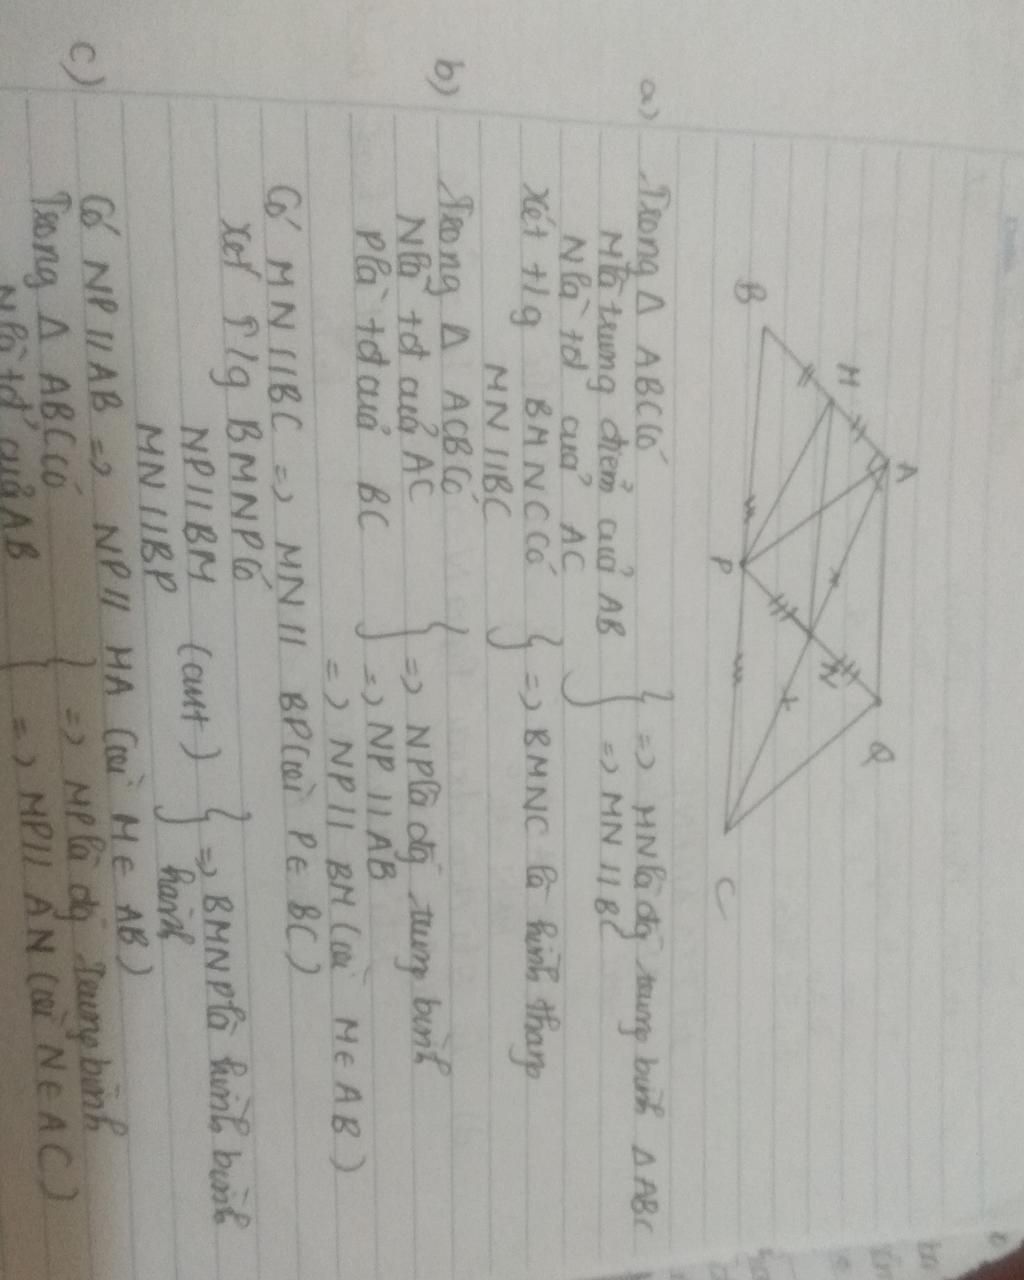 A
M
Q
N
B
P
C
a) Trong Δ ABC có
M là trung điểm của AB } => MN là đg trung bình Δ ABC
N là tđ của AC } => MN // BC
Xét t/g BMNC có } => BMNC là hình thang
MN // BC
b) Trong Δ ACB có } => NP là đg trung bình
N là tđ của AC } => NP // AB
P là tđ của BC => NP // BM (vì M ∈ AB)
Có MN // BC => MN // BP (vì P ∈ BC)
Xét T/g BMNP có
NP // BM (cmt) } => BMNP là hình bình
MN // BP hành
c) Có NP // AB => NP // MA (vì M ∈ AB)
Trong Δ ABC có } => MP là đg trung bình
N là tđ của AB } => MP // AN (vì N ∈ AC)